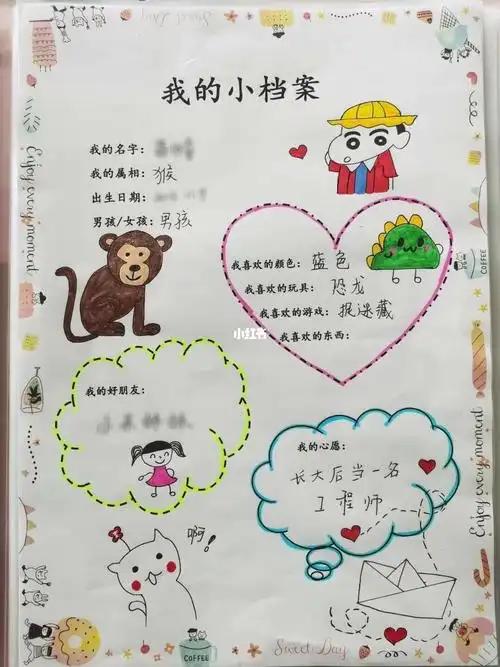 Sweet Day
我的小档案
我的名字:
我的属相:猴
出生日期:
男孩/女孩:男孩
Enjoy every moment
我喜欢的颜色:蓝色
我喜欢的玩具:恐龙
我喜欢的游戏:捉迷藏
我喜欢的东西:
小红书
我的好朋友:
我的心愿:
长大后当一名
工程师
啊!
Enjoy every moment
COFFEE
COFFEE
Sweet Day
COFFEE